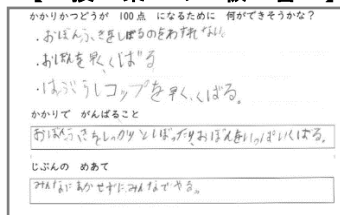 かかりかつどうが 100点 になるために 何ができそうかな？
・おぼんふきをしぼるのをわすれない
・おぼんを早くくばる
・はぶらしコップを早く、くばる。
かかりで がんばること
おぼんふきをしっかりとしぼったり、おぼんをいっぱいくばる。
じぶんの めあて
みんなにまかせずにみんなでやる。